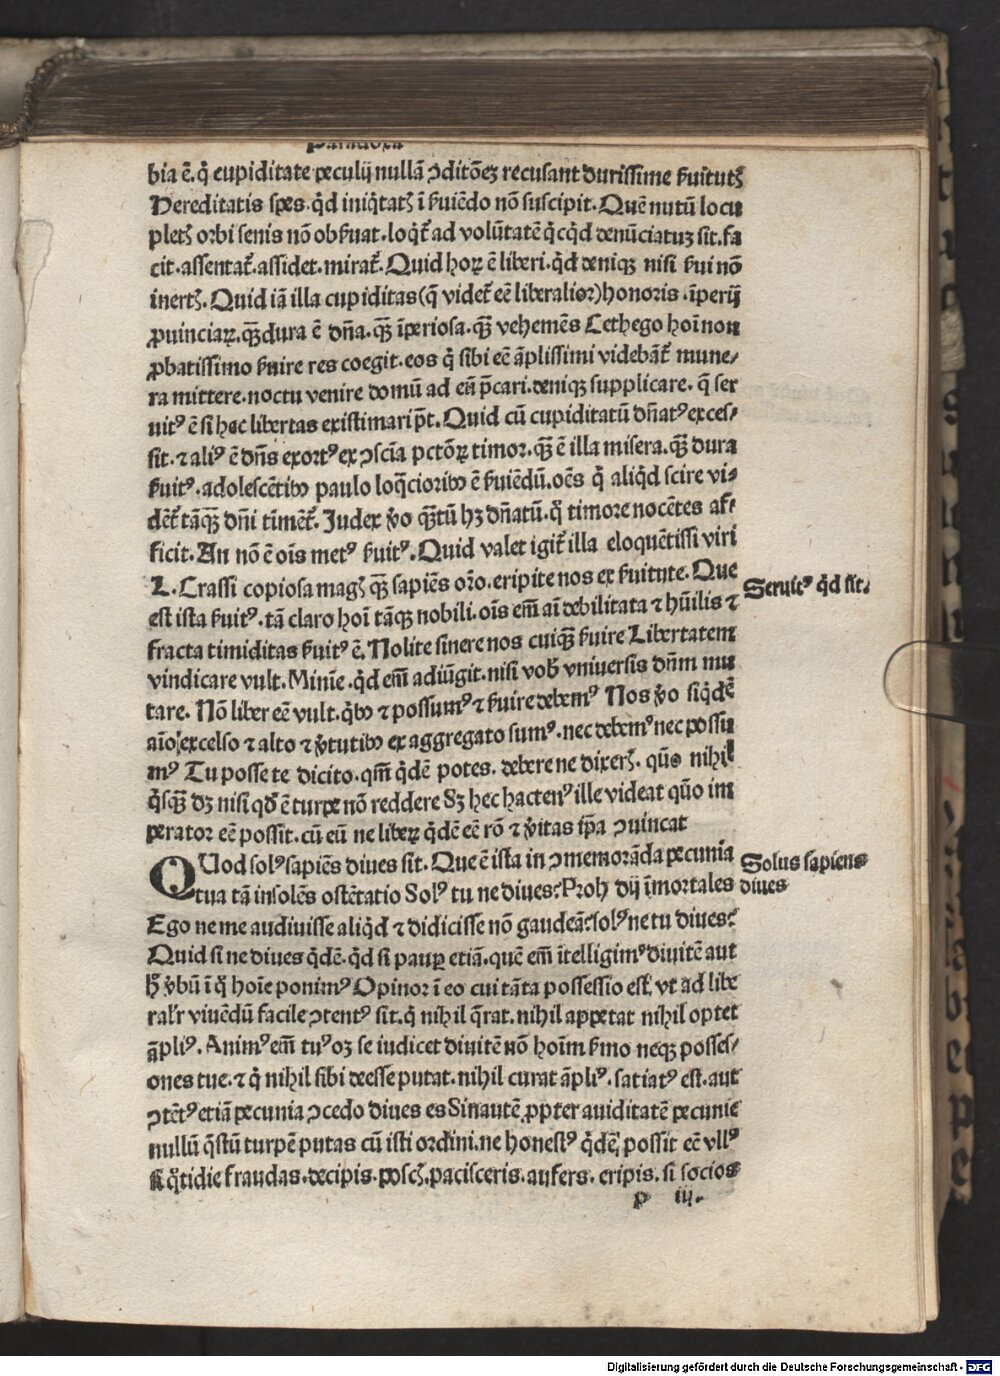 Paradoxa
bia ē. q̄ cupiditate peculij nullā ↄditōeꝫ recusant durissime ẜuitutꝭ
Hereditatis spes. qd̄ iniq̄tatꝭ ī ẜuiēdo nō suscipit. Quē nutū locu
pletꝭ orbi senis nō obẜuat. loqt̄ ad volūtatē q̄cqd̄ denūciatuꝫ sit. fa
cit. assentat̄. assidet. mirat̄. Quid hoꝝ ē liberi. qd̄ deniqꝫ nisi ẜui nō
inertꝭ. Quid iā illa cupiditas (q̄ videt̄ eē liberalior) honoris. īperij
ꝓuinciaꝝ. qꝫ̄ dura ē dn̄a. qꝫ̄ īperiosa. qꝫ̄ vehemēs Cethego hoī non
ꝓbatissimo ẜuire res coegit. eos q̄ sibi eē āplissimi videbāt̄ mune/
ra mittere. noctu venire domū ad eū p̄cari. deniqꝫ supplicare. q̄ ser
uitꝰ ē si hec libertas existimari pt̄. Quid cū cupiditatū dn̄atꝰ exces/
sit. ⁊ aliꝰ ē dn̄s exortꝰ ex ↄsciā pctōꝝ timor. qꝫ̄ ē illa misera. qꝫ̄ dura
ẜuitꝰ. adolescētibꝰ paulo loq̄cioribꝰ ē ẜuiēdū. oēs q̄ aliqd̄ scire vi⸗
dēt̄ tāqꝫ̄ dn̄i timēt̄. Judex v̄o qꝫ̄tū hꝫ dn̄atū. q̄ timore nocētes af⸗
ficit. An nō ē oīs metꝰ ẜuitꝰ. Quid valet igit̄ illa eloquētissi viri
L. Crassi copiosa magꝭ qꝫ̄ sapiēs oro. eripite nos ex ẜuitute. Que
Seruitꝰ qd̄ sit.
est ista ẜuitꝰ. tā claro hoī tāqꝫ nobili. oīs em̄ aī debilitata ⁊ hūilis ⁊
fracta timiditas ẜuitꝰ ē. Nolite sinere nos cuiqꝫ̄ ẜuire Libertatem
vindicare vult. Minīe. qd̄ em̄ adiūgit. nisi vobꝭ vniuersis dn̄m mu
tare. Nō liber eē vult. qͥbꝰ ⁊ possumꝰ ⁊ ẜuire debemꝰ Nos v̄o siqͥdē
aīo excelso ⁊ alto ⁊ v̄tutibꝰ exaggerato sumꝰ. nec debemꝰ nec possu
mꝰ Tu posse te dicito. qm̄ qͥdē potes. debere ne dixerꝭ. qūo nihil
qͥsqꝫ̄ dꝫ nisi qd̄ ē turpe nō reddere Sꝫ hec hactenꝰ ille videat qūo im
perator eē possit. cū eū ne liberꝝ qͥdē eē rō ⁊ v̄itas ip̄a ↄuincat
QUod solꝰ sapiēs diues sit. Que ē ista in ↄmemorāda pecunia
Solus sapiens
diues
tua tā insolēs ostētatio Solꝰ tu ne diues? Proh dij īmortales
Ego ne me audiuisse aliqd̄ ⁊ didicisse nō gaudeā? solꝰ ne tu diues?
Quid si ne diues qͥdē. qd̄ si pauꝑ etiā. quē em̄ ītelligimꝰ diuitē aut
h̄ v̄bū ī q̄ hoīe ponimꝰ Opinor ī eo cui tāta possessio est. vt ad libe
ral'r viuēdū facile ↄtentꝰ sit. q̄ nihil q̄rat. nihil appetat nihil optet
āpliꝰ. Animꝰ em̄ tuꝰ oꝫ se iudicet diuitē nō hoīm ẜmo neqꝫ posses/
ones tue. ⁊ q̄ nihil sibi deesse putat. nihil curat āpliꝰ. satiatꝰ est. aut
ↄtētꝰ etiā pecunia ↄcedo diues es Sin autē ꝓpter auiditatē pecunie
nullū q̄stū turpē putas cū isti ordini. ne honestꝰ qͥdē possit eē vllꝰ
si q̄tidie fraudas. decipis. poscꝭ. pacisceris. aufers. eripis. si socios
p iij.
Digitalisierung gefördert durch die Deutsche Forschungsgemeinschaft - DFG